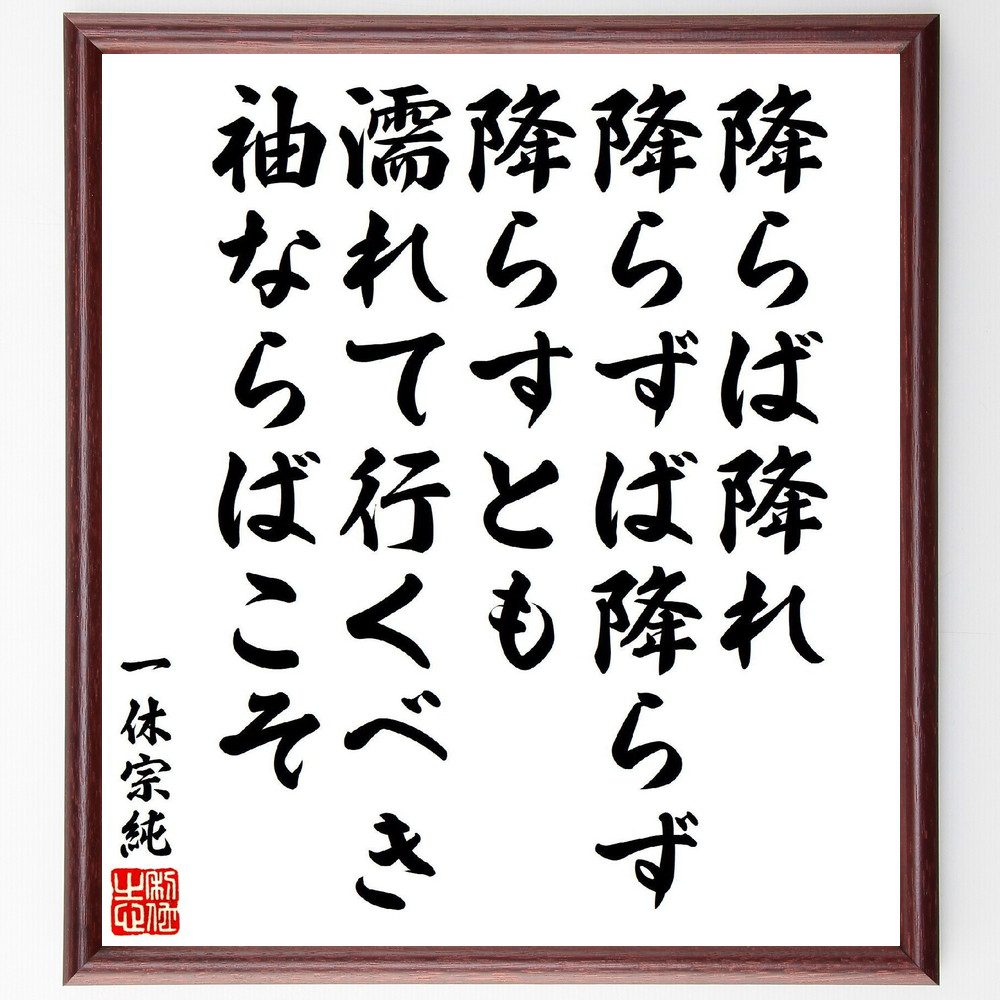 降らば降れ
降らずば降らず
降らすとも
濡れて行くべき
袖ならばこそ
一休宗純